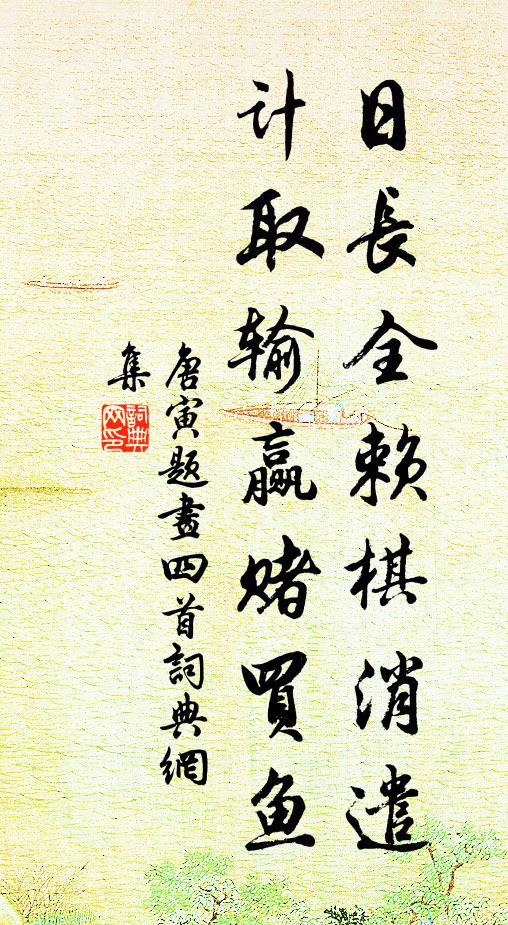 日長全赖棋消遣
计取输赢赌買鱼
唐寅题畫四首詞典網
集
詞典
网印